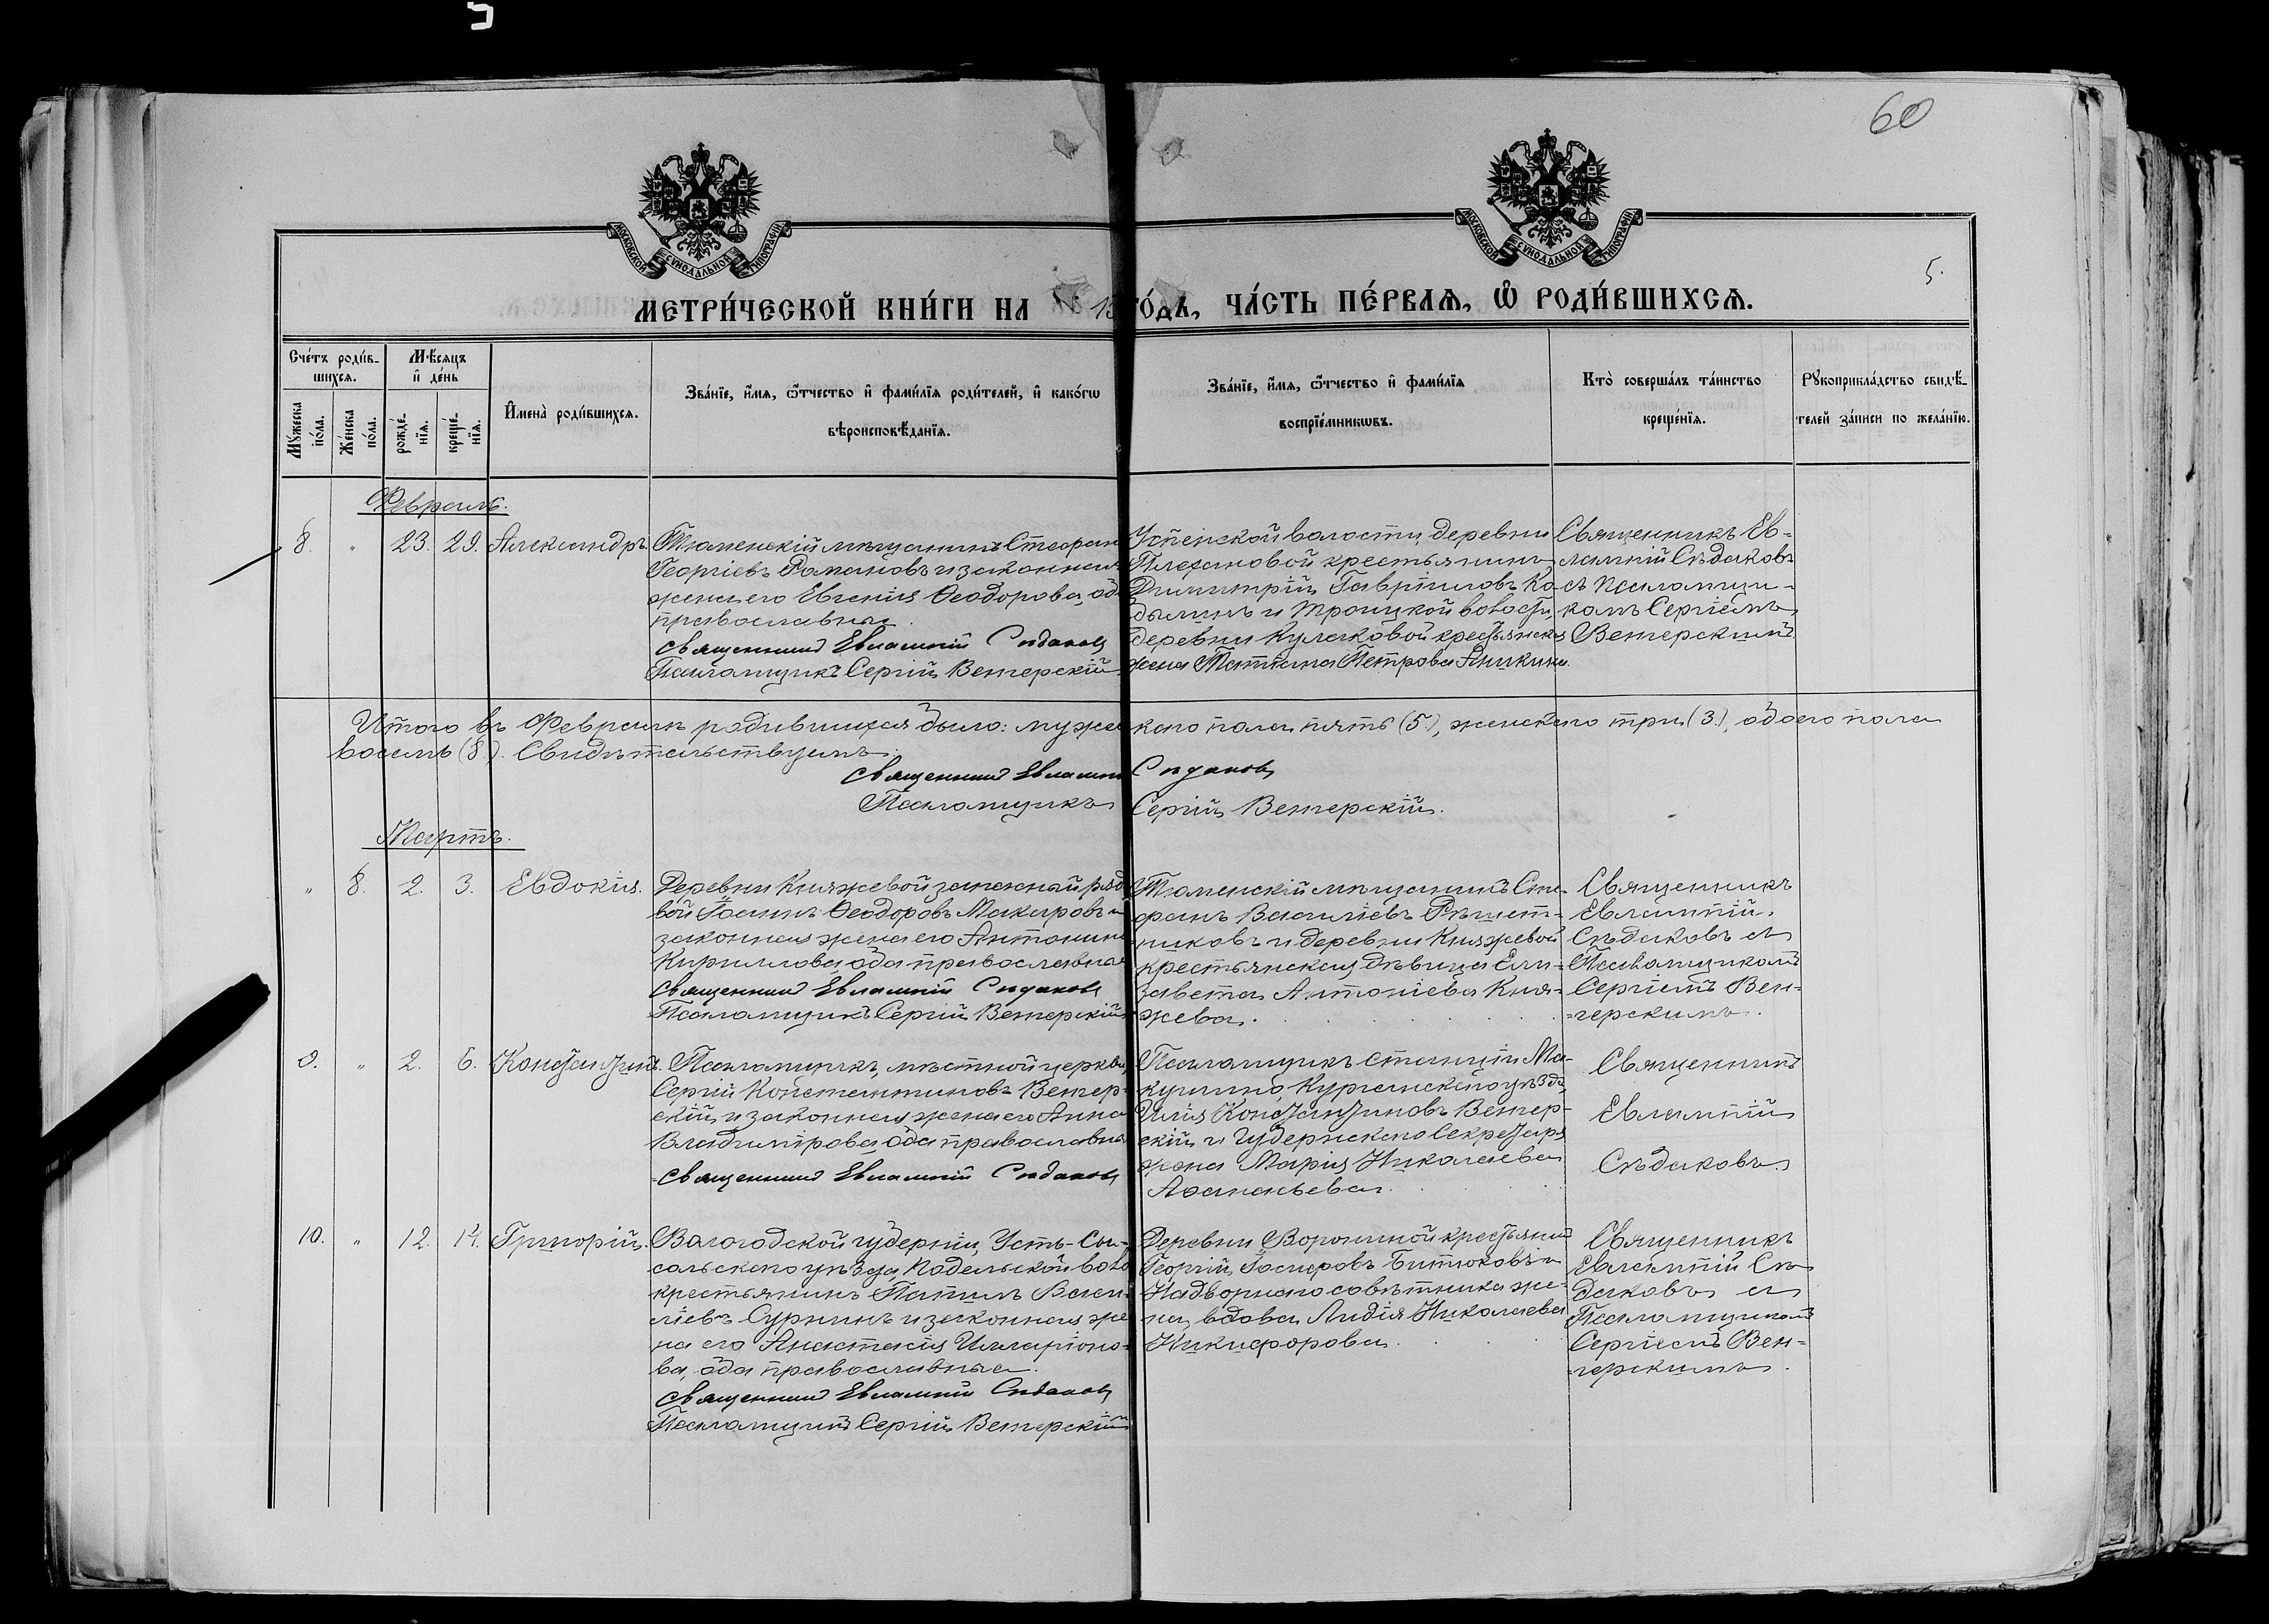 60
5.
МОСКОВСКОЙ СѴНОДАЛЬНОЙ ТИПОГРАФІИ
МОСКОВСКОЙ СѴНОДАЛЬНОЙ ТИПОГРАФІИ
МЕТРИ́ЧЕСКОЙ КНИ́ГИ НА 19 ГО́ДЪ, ЧА́СТЬ ПЕ́РВАѦ, Ѽ РОДИ́ВШИХСѦ.
Сче́тъ роди́вшихся.
Мѣ́сяцъ и҆ де́нь
Мꙋ́жеска по́ла.
Же́нска по́ла.
рожде́нїѧ.
креще́нїѧ.
И҆мена̀ роди́вшихсѧ.
Зва́нїе, и҆́мѧ, ѻ҆́тчество и҆ фами́лїѧ роди́телей, и҆ како́гѡ
вѣроисповѣ́данїѧ.
Зва́нїе, и҆́мѧ, ѻ҆́тчество и҆ фами́лїѧ
воспрїе́мникѡвъ.
Кто̀ соверша́лъ та́инство
креще́нїѧ.
Рꙋкоприкла́дство свидѣ́-
телей за́писи по жела́нїю.
Февраль.
8. " 23. 29. Александръ.
Тюменскій мѣщанинъ Стефан
Георгіевъ Романовъ и законная
жена его Евгенія Ѳеодорова, об
православные.
Священникъ Евлампій Сѣдаковъ
Псаломщикъ Сергій Венгерскій
Успенской волости, деревни
Плехановой крестьянинъ
Димитрій Гавріиловъ Ко-
дылинъ и Троицкой волости,
деревни Кулаковой крестьянская
жена Татіана Петрова Аникина.
Священникъ Ев-
лампій Сѣдаковъ
съ псаломщи-
комъ Сергіемъ
Венгерскимъ.
Итого въ Февралѣ родившихся было: мужескаго пола пять (5), женскаго три (3), обоего пола
восемь (8). Свидѣтельствуемъ:
Священникъ Евлампій Сѣдаковъ
Псаломщикъ Сергій Венгерскій.
Мартъ.
" 8. 2. 3. Евдокія.
Деревни Княжевой запасный рядо
вой Іоаннъ Ѳеодоровъ Макаровъ и
законная жена его Антонина
Кириллова, оба православные
Священникъ Евлампій Сѣдаковъ
Псаломщикъ Сергій Венгерскій
Тюменскій мѣщанинъ Сте-
фанъ Василіевъ Рѣшет-
никовъ и деревни Княжевой
крестьянская дѣвица Ели-
завета Антоніева Кня-
жева.
Священникъ
Евлампій
Сѣдаковъ съ
Псаломщикомъ
Сергіемъ Вен-
герскимъ.
9. " 2. 6. Константинъ.
Псаломщикъ мѣстной церкви,
Сергій Константиновъ Венгер-
скій и законная жена его Анна
Владимірова, оба православные
Священникъ Евлампій Сѣдаковъ
Псаломщикъ станціи Ма-
кушино, Курганскаго уѣзда,
Илія Константиновъ Венгер-
скій и Губернскаго Секретаря
жена Марія Николаева
Аѳанасьева.
Священникъ
Евлампій
Сѣдаковъ
10. " 12. 14. Григорій.
Вологодской губерніи, Усть-Сы-
сольскаго уѣзда, Подельской воло
крестьянинъ Павелъ Васи-
ліевъ Суринъ и законная же
на его Анастасія Илларіоно-
ва, оба православные.
Священникъ Евлампій Сѣдаковъ
Псаломщикъ Сергій Венгерскій
Деревни Ворониной крестьянинъ
Георгій Іасоновъ Битюковъ и
Надворнаго совѣтника же-
на, вдова Лидія Николаева
Никифорова.
Священникъ
Евлампій Сѣ
даковъ съ
Псаломщикомъ
Сергіемъ Вен-
герскимъ.